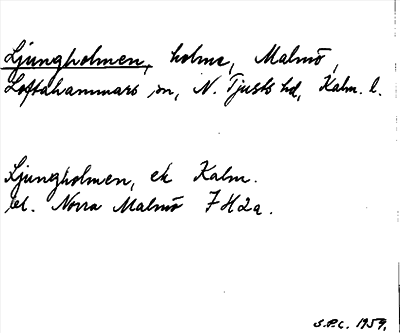 Ljungholmen, holme, Malmö,
Loftahammars sn, N. Tjusts hd, Kalm. l.
Ljungholmen, ek Kalm.
bl. Norra Malmö 7H2a.
S.P.C. 1959.